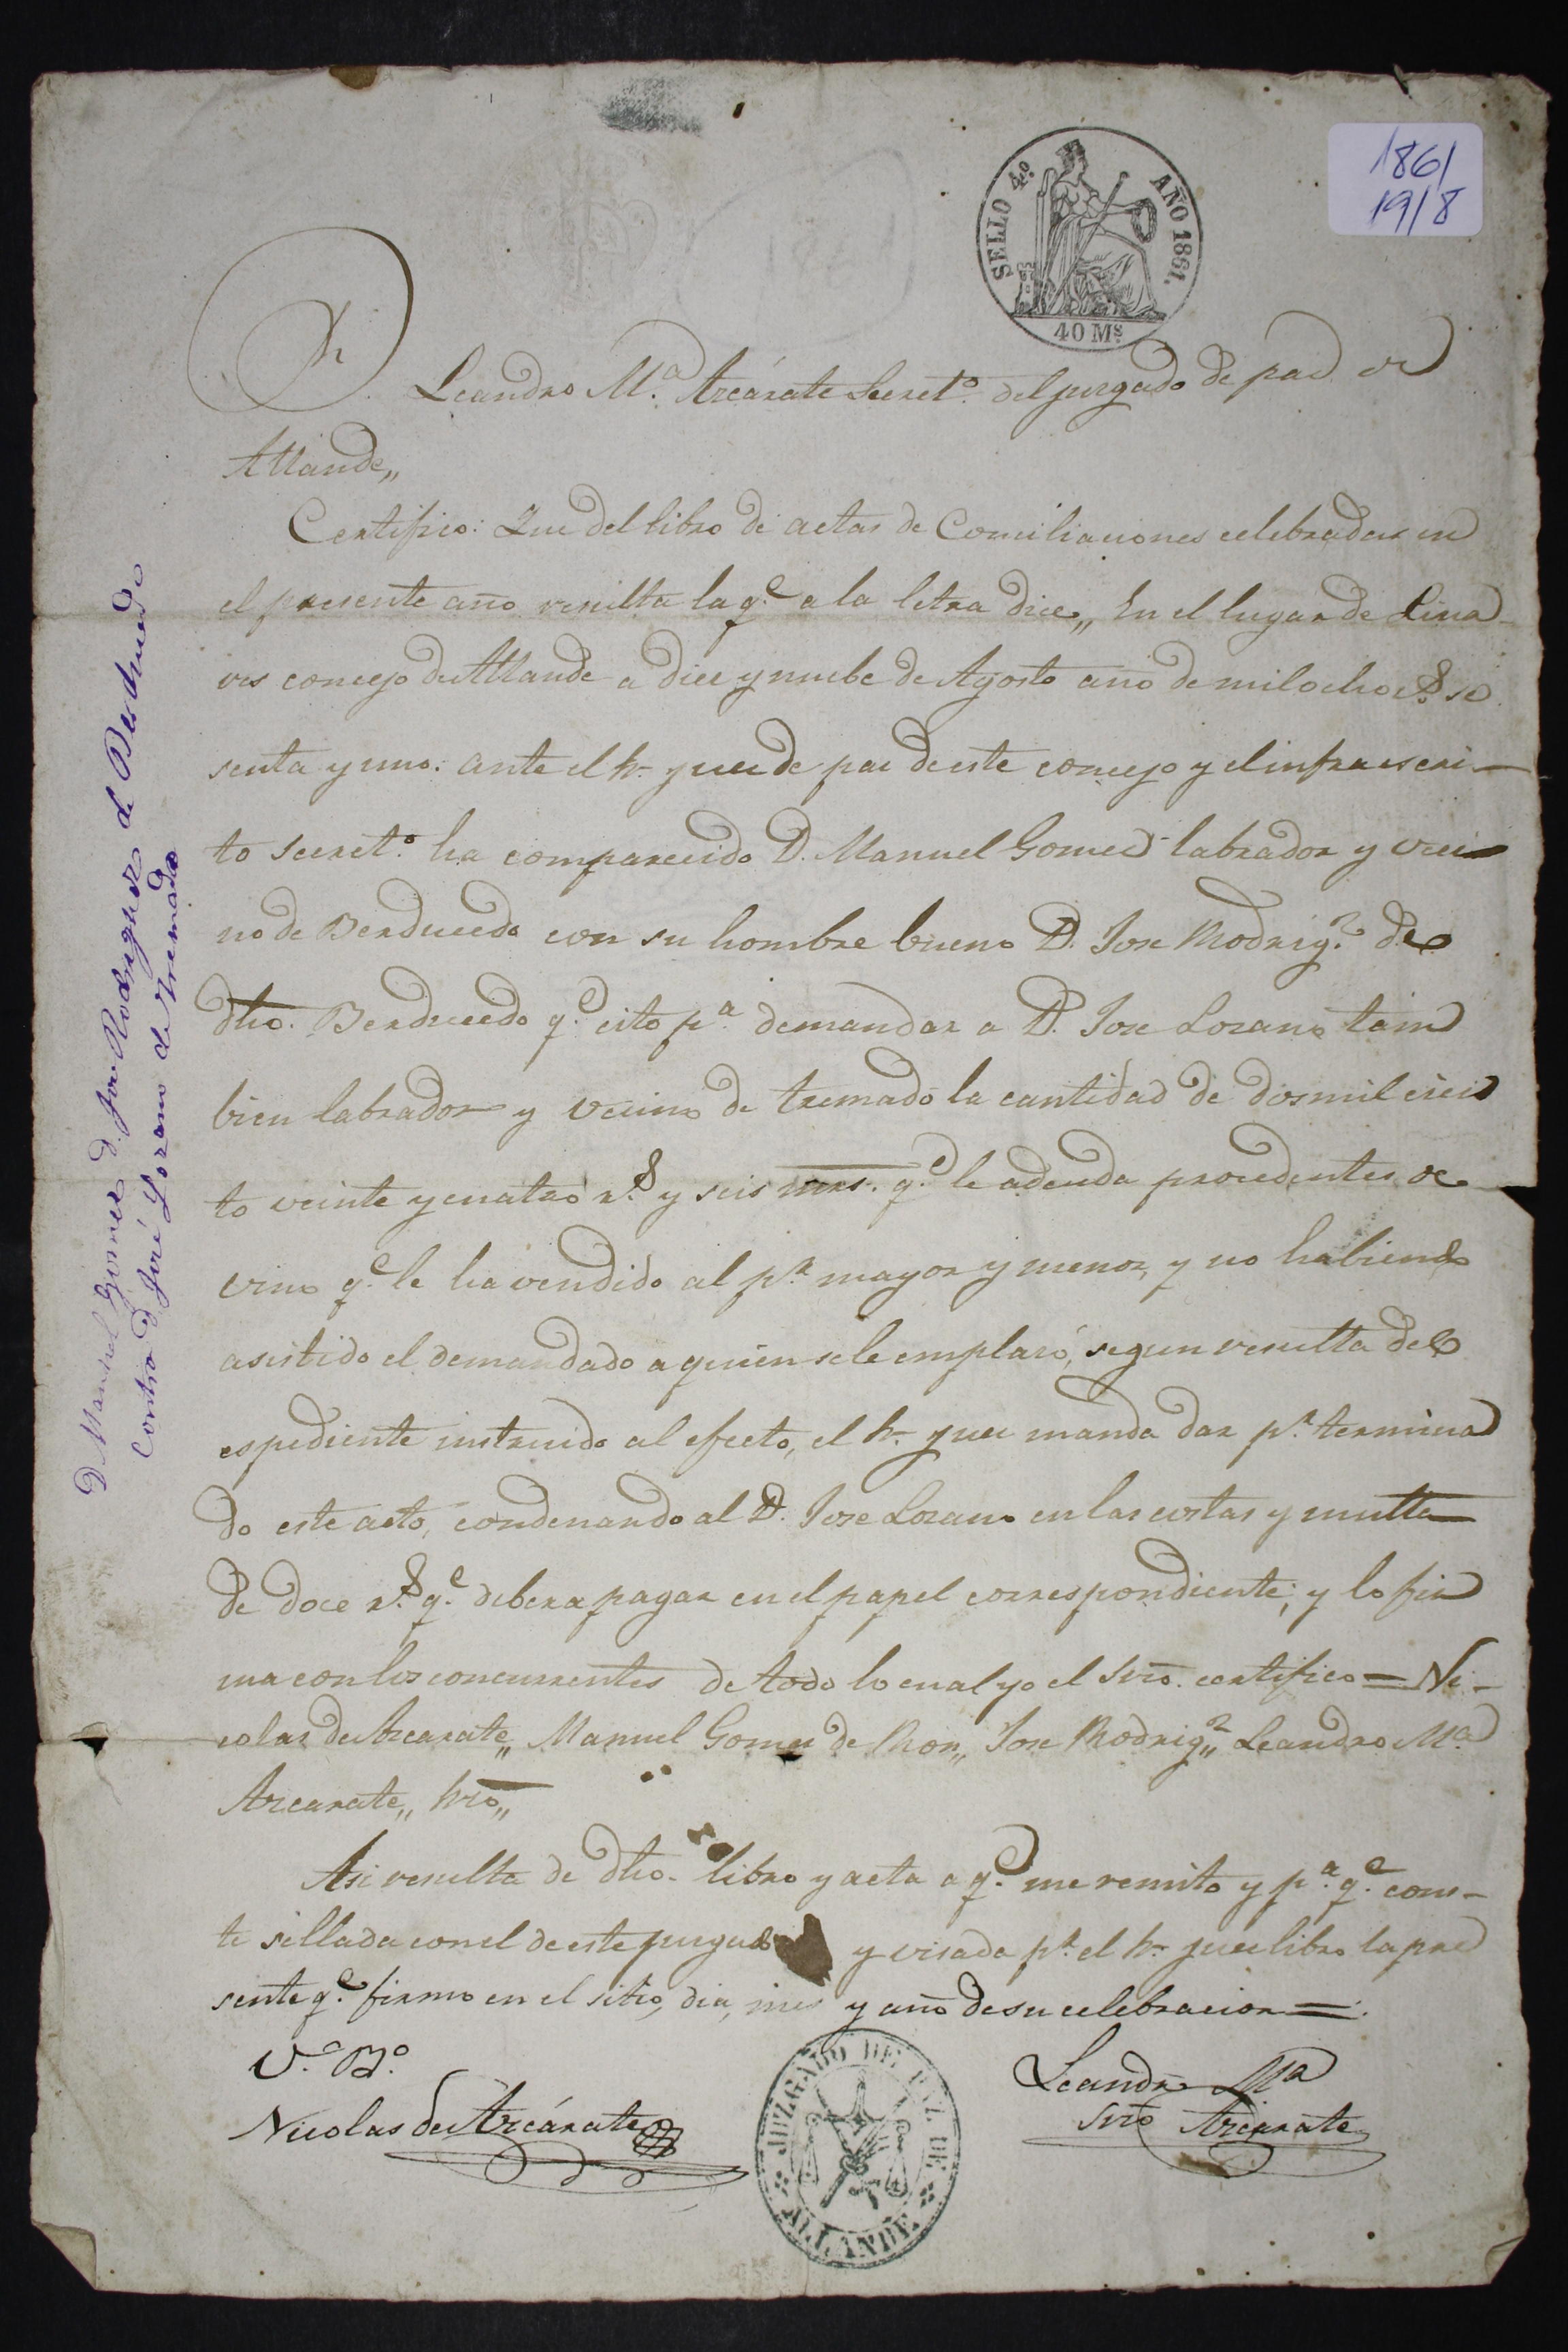 1861
19/8
SELLO 4º AÑO 1861.
40 Ms
D.
Leandro Mª Azcárate Secretº del juzgado de paz de
Allande,,
Certifico: Que del libro de actas de Conciliaciones celebradas en
el presente año resulta la qe a la letra dice,, En el lugar de Lina-
res concejo de Allande a diez y nuebe de Agosto año de mil ochocs se
senta y uno: ante el Sr juez de paz de este concejo y el infraescri-
to Secretº ha comparecido D. Manuel Gomez labrador y veci
no de Berducedo con su hombre bueno D. Jose Rodrigz de
dho. Berducedo qe cito pa demandar a D. Jose Lozano tam
bien labrador y vecino de tremado la cantidad de dos mil cien
to veinte y cuatro rs y seis mrs. qe le adeuda procedentes de
vino qe le ha vendido al pr mayor y menor, y no habiendo
asistido el demandado a quien se le emplazó, segun resulta del
espediente instruido al efecto, el Sr juez manda dar pr termina
do este acto, condenando al D. Jose Lozano en las costas y multa
de doce rs qe debera pagar en el papel correspondiente; y lo fir
ma con los concurrentes de todo lo cual yo el Srio. certifico = Ni-
colas de Azcarate,, Manuel Gomez de Mon,, Jose Rodrigz,, Leandro Mª
Azcarate,, Srio,,
Asi resulta de dho. libro y acta a qe me remito y pa qe cons-
te sellada con el de este juzgado y visada pr el Sr juez libro la pre
sente qe firmo en el sitio, dia, mes y año de su celebracion =.
V.º B.º
Nicolas de Azcárate
Leandro Mª
Srio Azcarate
JUZGADO DE PAZ DE
ALLANDE
D Manuel Gomez D. José Rodriguez de Berducedo
Contra D José Lozano de Tremado